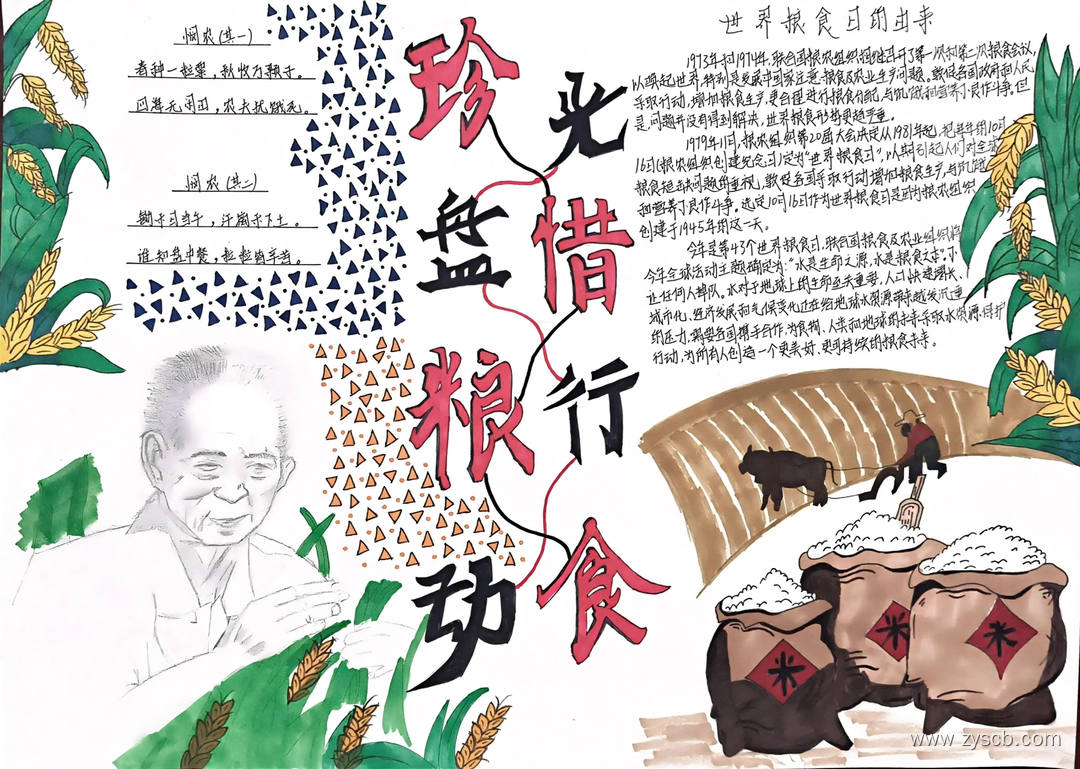 悯农(其一)
春种一粒粟，秋收万颗子。
四海无闲田，农夫犹饿死。
悯农(其二)
锄禾日当午，汗滴禾下土。
谁知盘中餐，粒粒皆辛苦。
珍惜粮食
光盘行动
世界粮食日的由来
1973年和1974年，联合国粮农组织相继召开了第一次和第二次粮食会议，
以唤起世界，特别是发展中国家注意粮食及农业生产问题。敦促各国政府和人民
采取行动，增加粮食生产，更合理进行粮食分配，与饥饿和营养不良作斗争。但
是，问题并没有得到解决，世界粮食形势更趋严重。
1979年11月，粮农组织第20届大会决定从1981年起，把每年的10月
16日(粮农组织创建纪念日)定为"世界粮食日"，以期引起人们对全球
粮食短缺问题的重视，敦促各国采取行动增加粮食生产，与饥饿
和营养不良作斗争。选定10月16日作为世界粮食日是因为粮农组织
创建于1945年的这一天。
今年是第43个世界粮食日，联合国粮食及农业组织将
今年全球活动主题确定为："水是生命之源，水是粮食之本。不
让任何人掉队。水对于地球上的生命至关重要，人口快速增长、
城市化、经济发展和气候变化正在给地球水资源带来越发沉重
的压力，需要各国携手合作，为食物、人类和地球的未来采取水资源保护
行动，为所有人创造一个更美好、更可持续的粮食未来。
米
米
米
www.zyscb.com